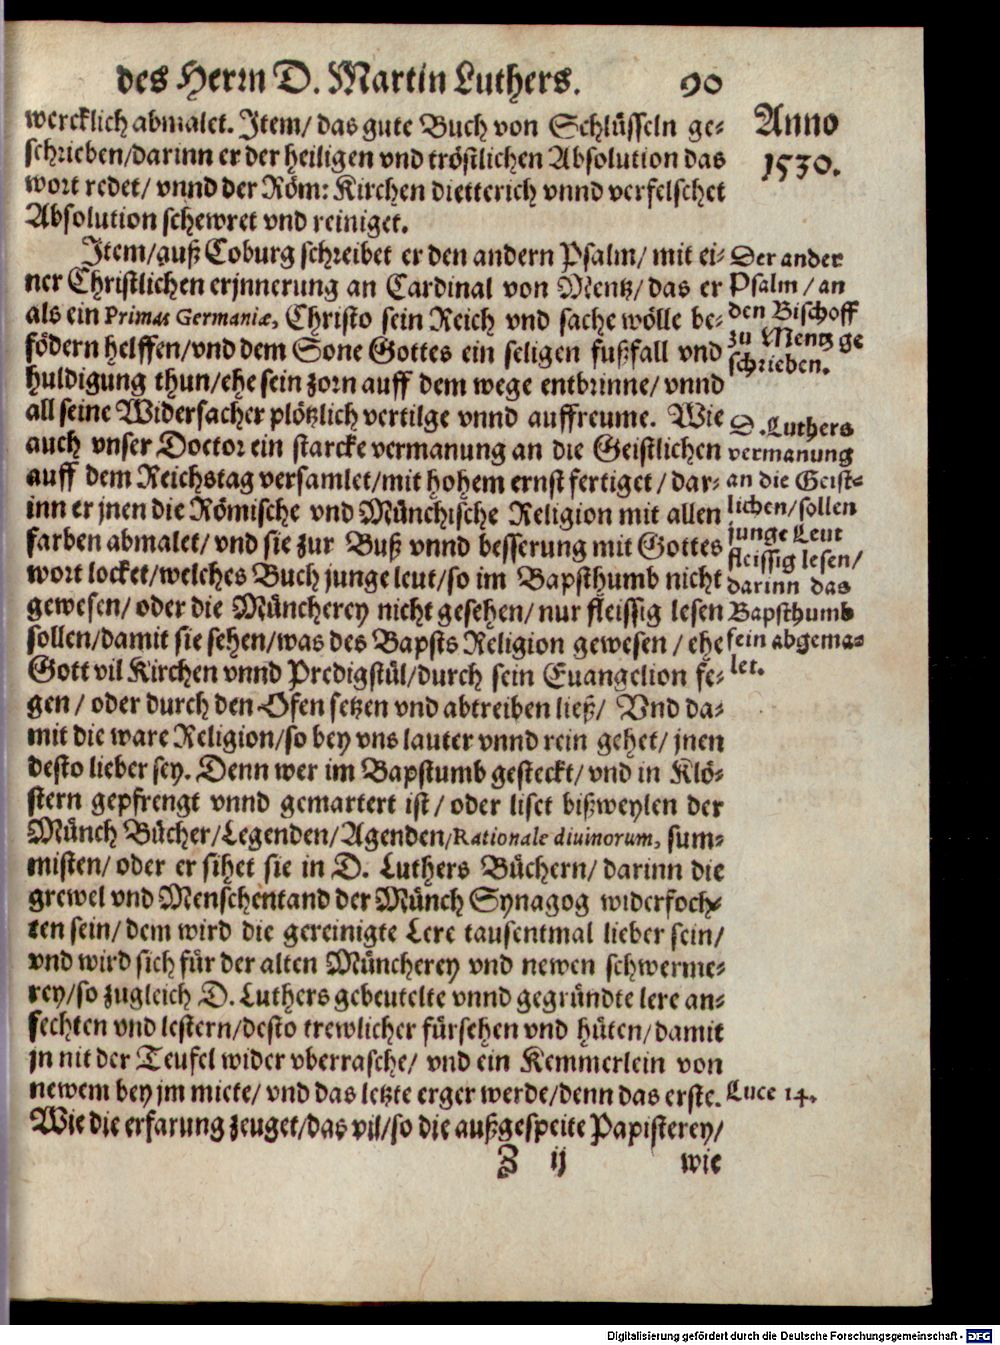 des Herrn D. Martin Luthers. 90
wercklich abmalet. Item/ das gute Buch von Schlüsseln ge-
schrieben/darinn er der heiligen vnd tröstlichen Absolution das
wort redet/ vnnd der Röm: Kirchen dietterich vnnd verfelschet
Absolution schewret vnd reiniget.
Item/auß Coburg schreibet er den andern Psalm/ mit ei-
ner Christlichen erjnnerung an Cardinal von Mentz/das er
als ein Primas Germaniæ, Christo sein Reich vnd sache wölle be-
födern helffen/vnd dem Sone Gottes ein seligen fußfall vnd
huldigung thun/ehe sein zorn auff dem wege entbrinne/ vnnd
all seine Widersacher plötzlich vertilge vnnd auffreume. Wie
auch vnser Doctor ein starcke vermanung an die Geistlichen
auff dem Reichstag versamlet/mit hohem ernst fertiget/ dar-
inn er jnen die Römische vnd Münchische Religion mit allen
farben abmalet/ vnd sie zur Buß vnnd besserung mit Gottes
wort locket/welches Buch junge leut/so im Bapsthumb nicht
gewesen/ oder die Müncherey nicht gesehen/ nur fleissig lesen
sollen/damit sie sehen/was des Bapsts Religion gewesen/ ehe
Gott vil Kirchen vnnd Predigstül/durch sein Euangelion fe-
gen/ oder durch den Ofen setzen vnd abtreiben ließ/ Vnd da-
mit die ware Religion/so bey vns lauter vnnd rein gehet/ jnen
desto lieber sey. Denn wer im Bapstumb gesteckt/ vnd in Klö-
stern gepfrengt vnnd gemartert ist/ oder liset bißweylen der
Münch Bücher/Legenden/Agenden/Rationale diuinorum, sum-
misten/ oder er sihet sie in D. Luthers Büchern/ darinn die
grewel vnd Menschentand der Münch Synagog widerfoch-
ten sein/ dem wird die gereinigte Lere tausentmal lieber sein/
vnd wird sich für der alten Müncherey vnd newen schwerme-
rey/so zugleich D. Luthers gebeutelte vnnd gegründte lere an-
fechten vnd lestern/desto trewlicher fürsehen vnd hüten/damit
jn nit der Teufel wider vberrasche/ vnd ein Kemmerlein von
newem bey jm miete/ vnd das letzte erger werde/denn das erste.
Wie die erfarung zeuget/das vil/so die außgespeite Papisterey/
Z ij wie
Anno
1530.
Der ander
Psalm/ an
den Bischoff
zu Mentz ge
schrieben.
D. Luthers
vermanung
an die Geist-
lichen/sollen
junge Leut
fleissig lesen/
darinn das
Bapsthumb
fein abgema-
let.
Luce 14.
Digitalisierung gefördert durch die Deutsche Forschungsgemeinschaft - DFG